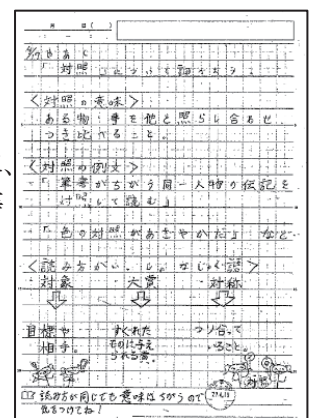 月 日( )
めあて
「対照」について調べよう。
<対照の意味>
ある物・事を他と照らし合わせ、
つき比べること。
<対照の例文>
・「筆者がちがう同一人物の伝記を
対照して読む」
・「色の対照があざやかだ」など
<読み方がいっしょなじゅく語>
・対象 ・大賞 ・対称
目標や すぐれた つり合って
相手。 ものに与え いること。
られる賞。
読み方が同じでも意味はちがうので
気をつけてね!